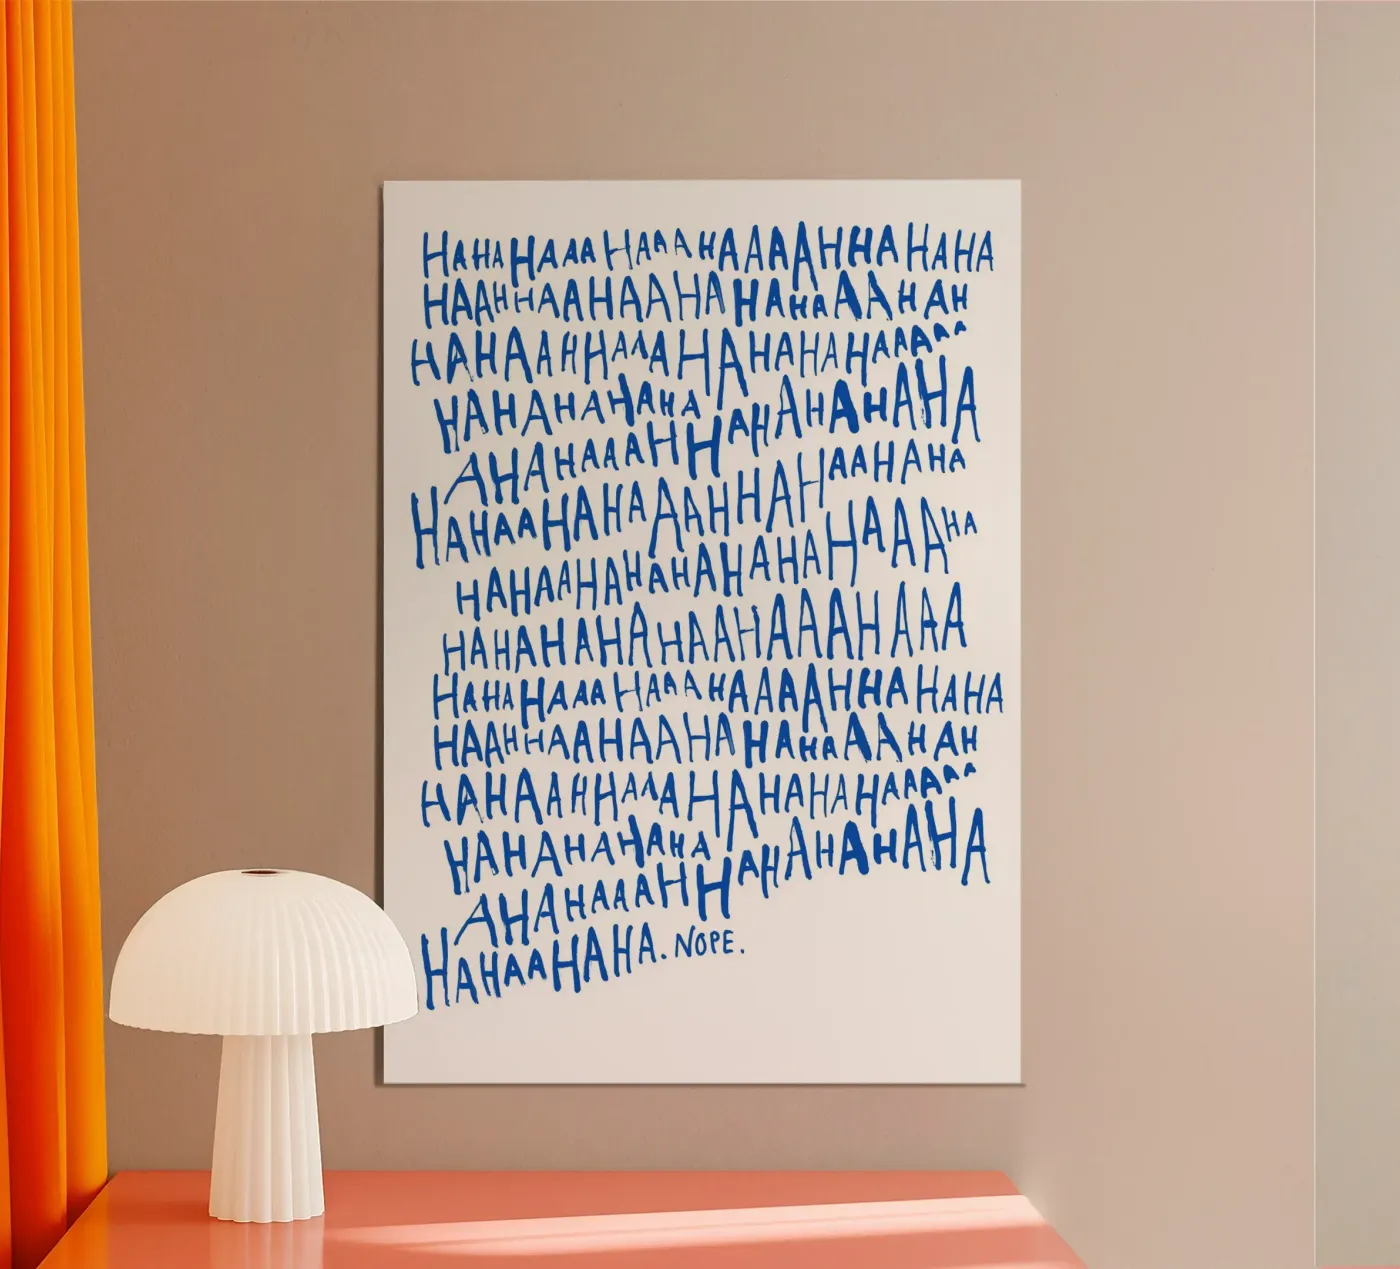 HAHAHAAAHAAAHAAAAHHAHAHA
HAAHHAAHAAHAHAHAAAHAH
HAHAAHHAAAHAHAHAHAAAAA
HAHAHAHAHA
AHAHAAAHHAHAHAHAHA
HAHAAHAHAAAHHAHAAHAHA
HAHAAHAHAHAHAHAHAAAHA
HAHAHAHAHAAHAAAHAAA
HAHAHAAAHAAAHAAAAHHAHAHA
HAAHHAAHAAHAHAHAAAHAH
HAHAAHHAAAHAHAHAHAAAAA
HAHAHAHAHA
AHAHAAAHHAHAHAHAHA
HAHAAHAHA. NOPE.